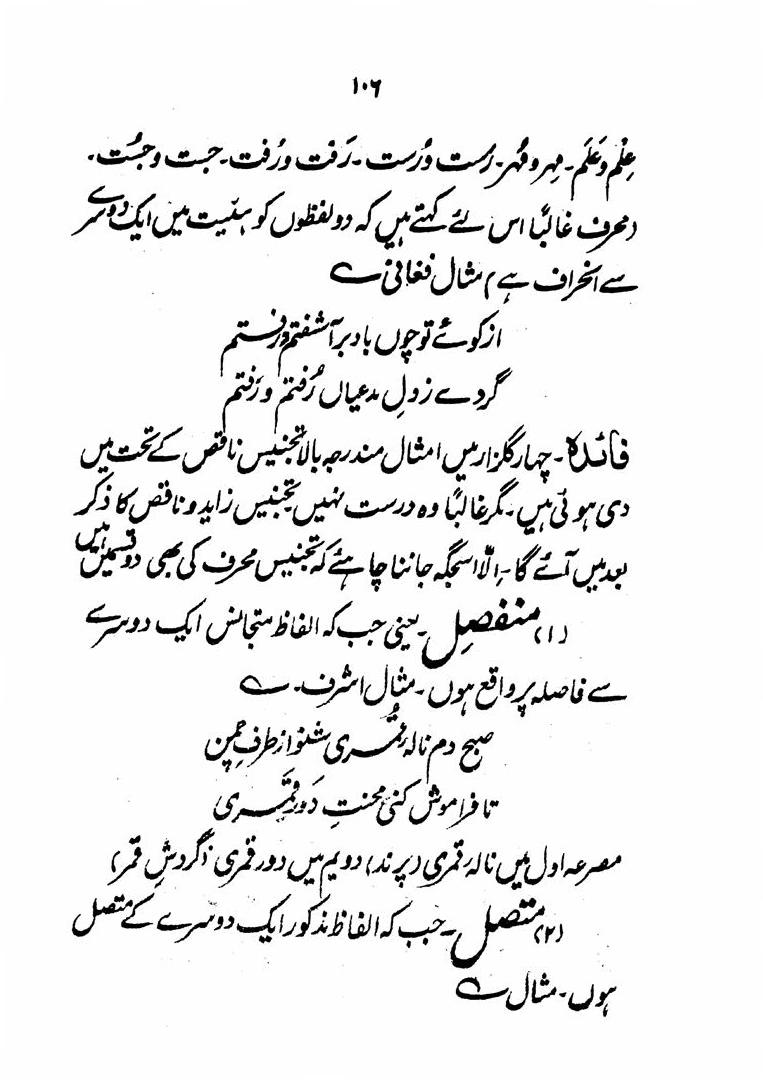 ۱۰۶
عِلْم و عَلَم۔ مِہر و مُہر۔ رُست و رَست۔ رَفت و رُفت۔ جَست و جُست۔
(محرف غالبًا اس لئے کہتے ہیں کہ دو لفظوں کو ہیئت میں ایک دوسرے
سے انحراف ہے) مثال فغانی ؎
از کوئے تو چوں باد برآشفتم و رفتم
گردے ز دلِ مدعیاں رُفتم و رَفتم
فائدہ۔ چہار گلزار میں امثال مندرجہ بالا تجنیس ناقص کے تحت میں
دی ہوئی ہیں۔ مگر غالبًا وہ درست نہیں تجنیس زاید و ناقص کا ذکر
بعد میں آئے گا۔ اِلّا اسجگہ جاننا چاہئے کہ تجنیس محرف کی بھی دو قسمیں ہیں
(۱) منفصِل۔ یعنی جب کہ الفاظ متجانس ایک دوسرے
سے فاصلہ پر واقع ہوں۔ مثال اشرف۔ ؎
صبح دم نالہ قُمری شنو از طرفِ چمن
تا فراموش کنی محنتِ دَورِ قَمری
مصرعہ اول میں نالہ قمری (پرند) دویم میں دور قمری (گردشِ قمر)
(۲) متصل۔ جب کہ الفاظ مذکور ایک دوسرے کے متصل
ہوں۔ مثال ؎